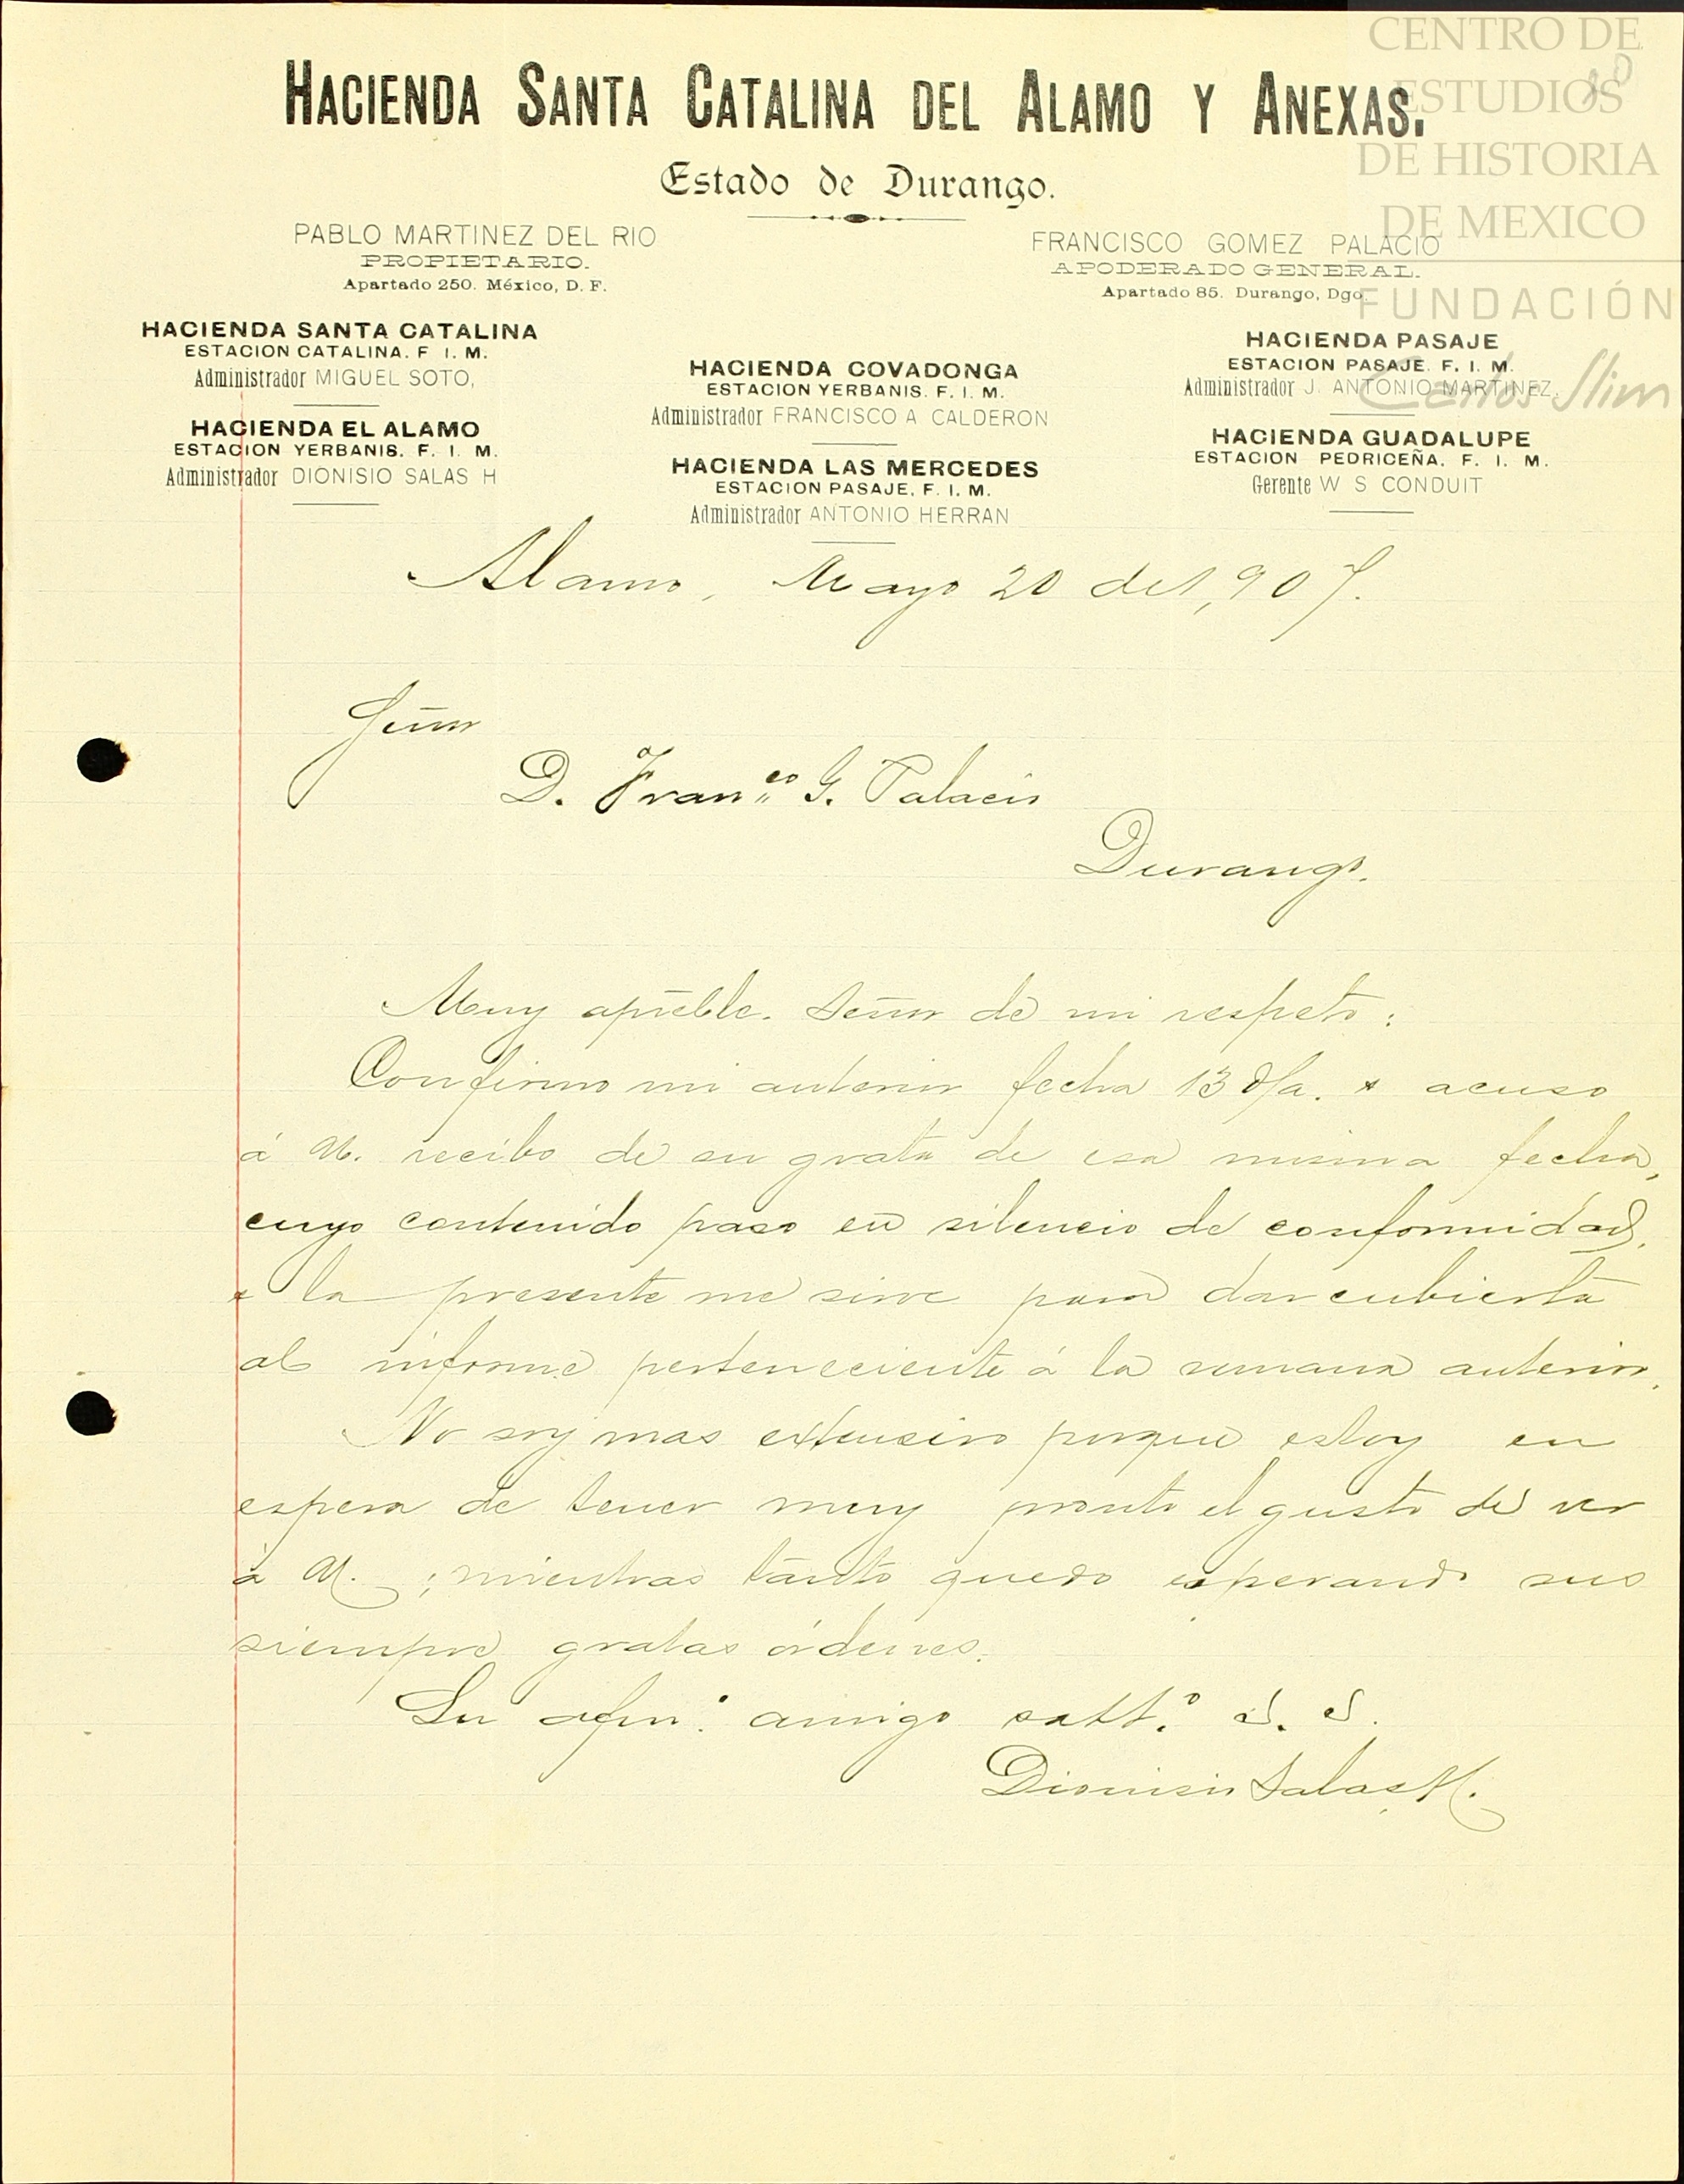 CENTRO DE
ESTUDIOS
DE HISTORIA
DE MEXICO
FUNDACIÓN
Carlos Slim
HACIENDA SANTA CATALINA DEL ALAMO Y ANEXAS.
Estado de Durango.
PABLO MARTINEZ DEL RIO
PROPIETARIO.
Apartado 250. México, D. F.
FRANCISCO GOMEZ PALACIO
APODERADO GENERAL.
Apartado 85. Durango, Dgo.
HACIENDA SANTA CATALINA
ESTACION CATALINA. F. I. M.
Administrador MIGUEL SOTO,
HACIENDA EL ALAMO
ESTACION YERBANIS. F. I. M.
Administrador DIONISIO SALAS H
HACIENDA COVADONGA
ESTACION YERBANIS. F. I. M.
Administrador FRANCISCO A CALDERON
HACIENDA LAS MERCEDES
ESTACION PASAJE, F. I. M.
Administrador ANTONIO HERRAN
HACIENDA PASAJE
ESTACION PASAJE. F. I. M.
Administrador J. ANTONIO MARTINEZ.
HACIENDA GUADALUPE
ESTACION PEDRICEÑA. F. I. M.
Gerente W S CONDUIT
Alamo, Mayo 20 de 1,907.
Señor
D. Franco G. Palacio
Durango.
Muy apreble. Señor de mi respeto:
Confirmo mi anterior fecha 13 y acuso
á U. recibo de su grata de esa misma fecha,
cuyo contenido paso en silencio de conformidad,
y la presente me sirve para dar cubierta
al informe perteneciente á la semana anterior.
No soy mas extensivo porque estoy en
espera de tener muy pronto el gusto de ver
à U. ; mientras tanto quedo esperando sus
siempre gratas órdenes.
Su afmo. amigo atto. S. S.
Dionisio Salas H.